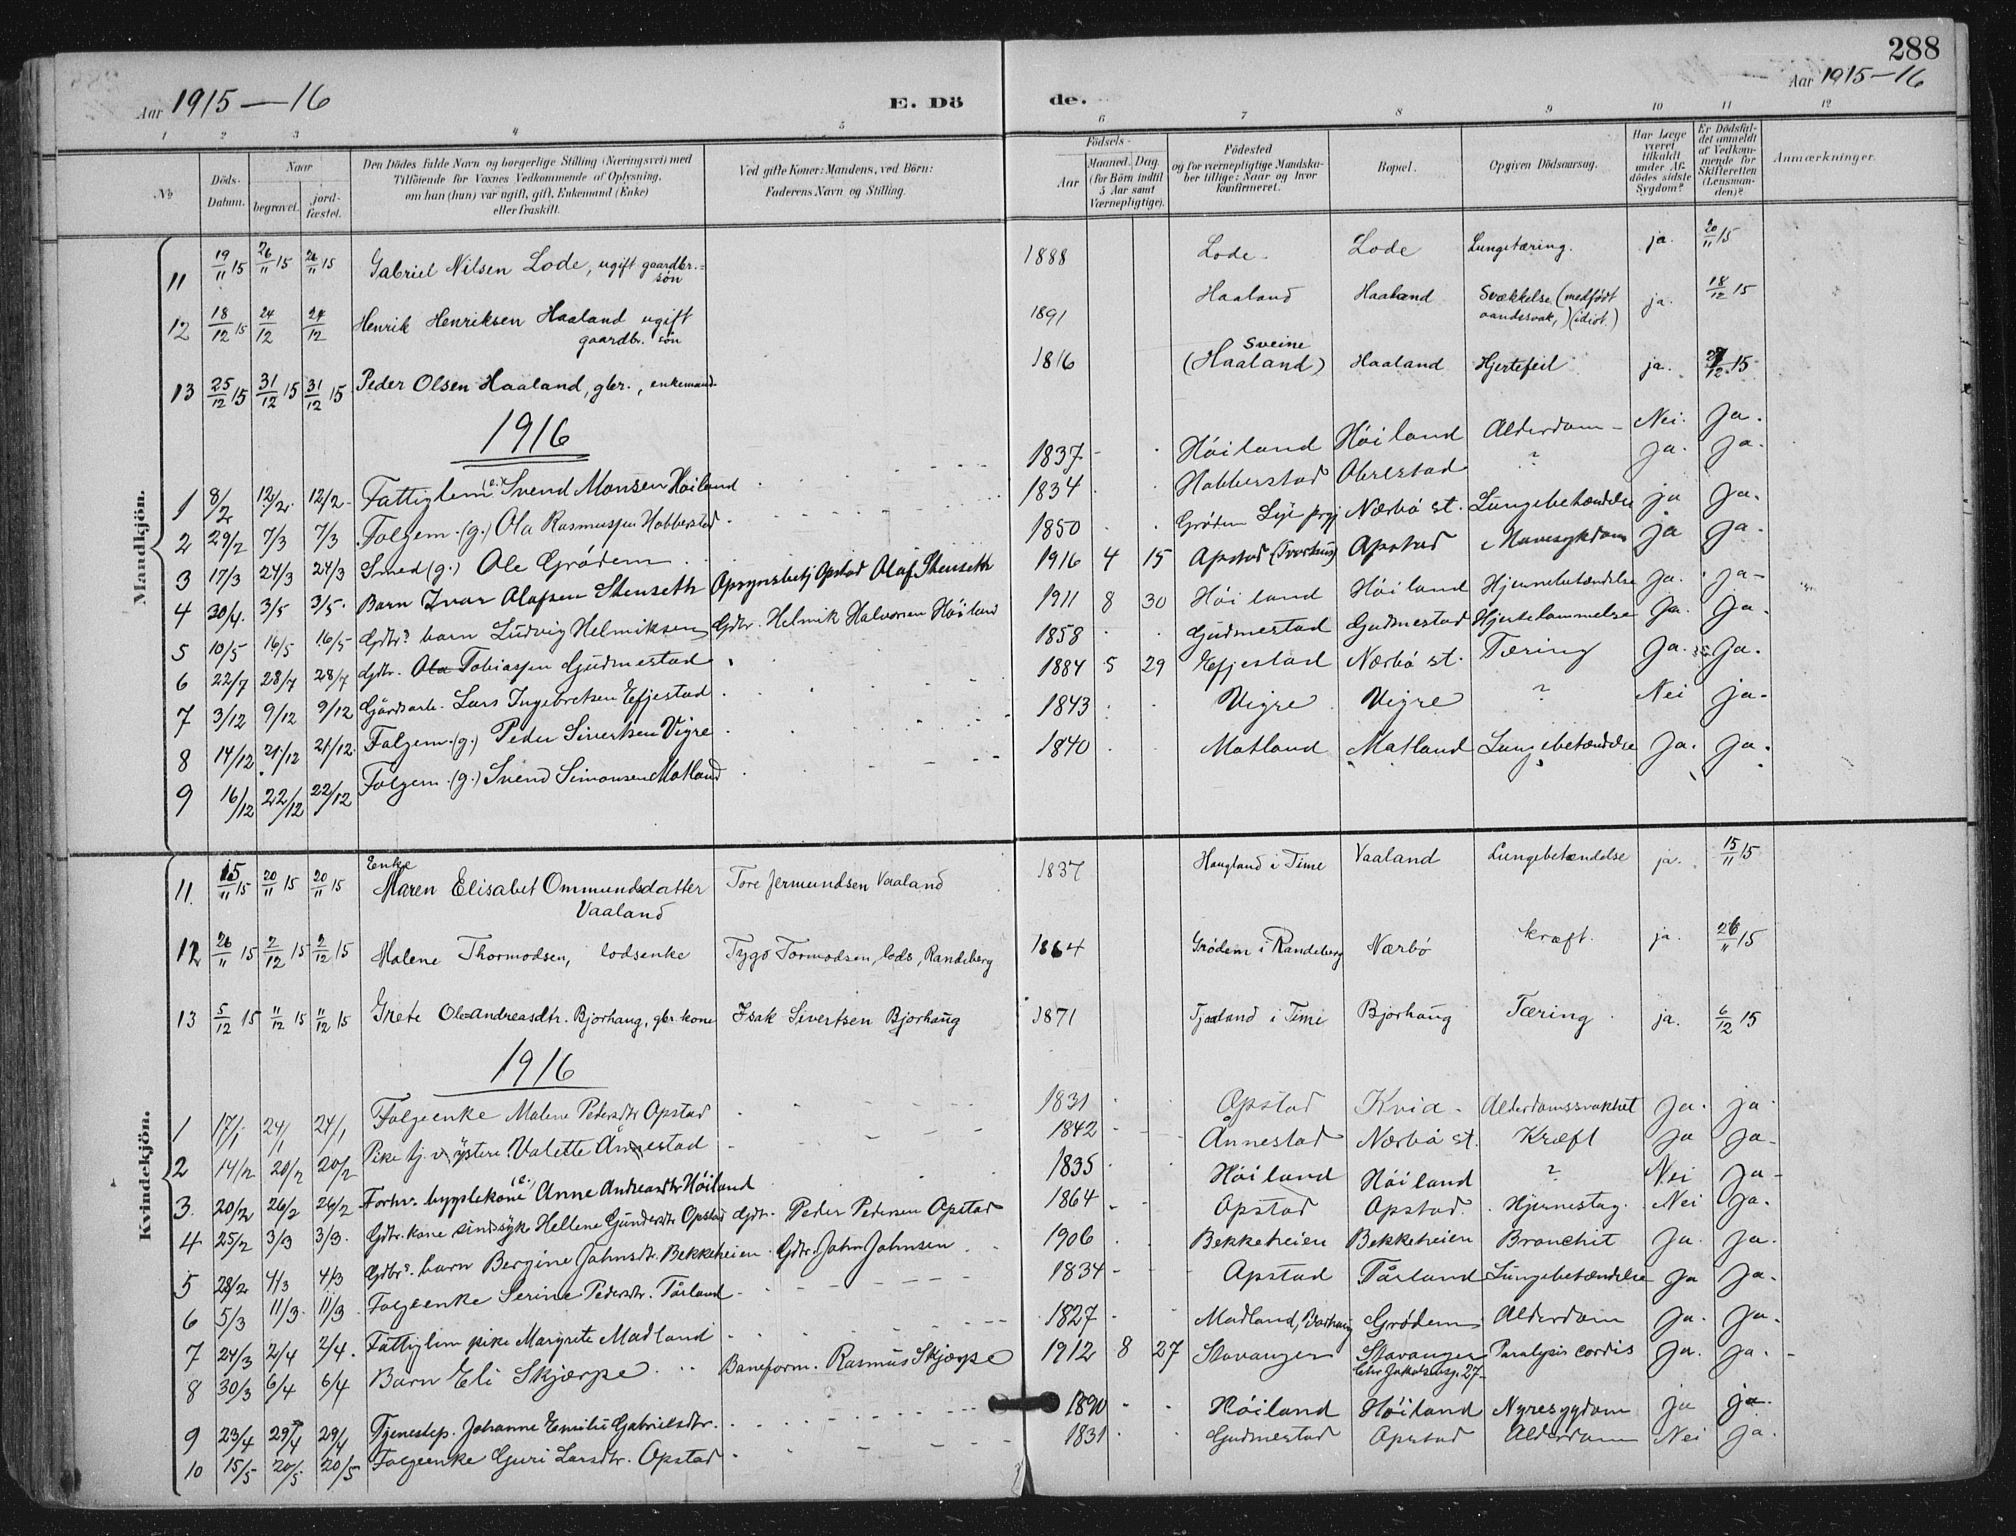 288
Aar 1915—16
E. Döde.
Aar 1915—16
1 2 3 4 5 6 7 8 9 10 11 12
No.
Döds-Datum.
Naar
begravet.
jordfæstet.
Den Dödes fulde Navn og borgerlige Stilling (Næringsvei) med
Tilföiende for Voxnes Vedkommende af Oplysning,
om han (hun) var ugift, gift, Enkemand (Enke)
eller fraskilt.
Ved gifte Koner: Mandens, ved Börn:
Faderens Navn og Stilling.
Födsels-
Aar
Maaned. Dag.
(for Börn indtil
5 Aar samt
Værnepligtige).
Födested
og for værnepligtige Mandskaber tillige: Naar og hvor
konfirmeret.
Bopæl.
Opgiven Dödsaarsag.
Har Læge
været
tilkaldt
under Afdödes sidste
Sygdom?
Er Dödsfaldet anmeldt
af Vedkommende for
Skifteretten
(Lensmanden)?
Anmærkninger.
Mandkjön.
11 19/11 15 26/11 15 26/11 15 Gabriel Nilsen Lode, ugift gaardbr. søn 1888 Lode Lode Lungetæring. ja. 20/11 15
12 18/12 15 24/12 24/12 Henrik Henriksen Haaland ugift gaardbr. søn 1891 Haaland Haaland Svækkelse (medfødt aandssvak,) (idiot.) ja. 18/12 15
13 25/12 15 31/12 15 31/12 15 Peder Olsen Haaland, gbr., enkemand. 1816 Sveine (Haaland) Haaland Hjertefeil ja. 27/12 15
1916
1 8/2 12/2. 12/2 Fattiglem (e.) Svend Monsen Høiland 1837 Høiland Høiland Alderdom Nei. Ja.
2 29/2 7/3 7/3 Folgem. (g.) Ola Rasmussen Hobberstad 1834 Hobberstad Obrestad ? Ja. Ja.
3 17/3 24/3 24/3 Smed (g.) Ole Grødem 1850 Grødem Lye prgj Nærbø st. Lungebetændelse ja Ja.
4 30/4. 3/5 3/5. Barn Ivar Olafsen Stenseth Opsynsbetj Opstad Olaf Stenseth 1916 4 15 Opstad Opstad Mavesykdom Ja Ja.
5 10/5 16/5 16/5 Gdbrs barn Ludvig Helmiksen Gdbr. Helmik Halvorsen Høiland 1911 8 30 Høiland Høiland Hjernebetændelse Ja. Ja
6 22/7 28/7 28/7 gdbr. Ola Tobiassen Gudmestad 1858 Gudmestad Gudmestad Hjertelammelse Ja. Ja.
7 3/12 9/12 9/12 Gårdsarb. Lars Ingebretsen Efjestad 1884 5 29 Efjestad Nærbø st. Tæring Ja. Ja.
8 14/12 21/12 21/12. Folgem. (g.) Peder Sivertsen Vigre 1843 Vigre Vigre ? Nei ja.
9 16/12 22/12 22/12 Folgem. (g.) Svend Simonsen Motland 1840 Motland Motland Lungebetændelse Ja. Ja.
Kvindekjön.
11. 15/11 15 20/11 15 20/11 15 Enke Maren Elisabet Ommundsdatter Vaaland Tore Jermundsen Vaaland 1837 Haugland i Time Vaaland Lungebetændelse ja. 15/11 15
12 26/11 15 2/12 15 2/12 15 Malene Thormodsen, lodsenke Tygo Tormodsen, lods, Randeberg 1864 Grødem i Randeberg Nærbø kræft. ja. 26/11 15
13 5/12 15 11/12 15 11/12 15 Grete Ole Andreasdtr. Bjorhaug, gbr. kone Isak Sivertsen Bjorhaug 1871 Tjaaland i Time Bjorhaug Tæring ja. 6/12 15
1916
1 17/1 24/1 24/1 Folgeenke Malene Pedersdtr Opstad 1831 Opstad Kvia Alderdomssvakhet Ja. ja
2 14/2 20/2 20/2 Pike tj. v. ystere Valette Ånestad 1842 Ånnestad Nærbø st. Kræft Ja Ja
3. 20/2 26/2 26/2 Forhv. bygslekone (e.) Anne Andreasdtr Høiland 1835 Høiland Høiland ? Nei Ja
4 25/2 3/3 3/3. Gdbr. kone sindssyke Hellene Gundersdtr Opstad Gdbr. Peder Pedersen Opstad 1864 Opstad Opstad Hjerneslag. Nei Ja.
5 28/2 4/3 4/3 Gdbrs. barn Bergine Johnsdtr. Bekkeheien Gdbr. John Johnsen 1906 Bekkeheien Bekkeheien Bronchit Ja. Ja.
6 5/3 11/3. 11/3. Folgeenke Serine Pedersdtr. Tårland 1834 Opstad Tårland Lungebetændelse Ja Ja.
7 24/3 2/4 2/4. Fattiglem pike Margrete Madland 1827 Madland, Grødem Alderdom Ja. Ja.
8 30/3 6/4 6/4 Barn Eli Skjærpe Baneform. Rasmus Skjærpe 1912 8 27 Stavanger Stavanger Chr. Jakobsensg. 27 Paralysis cordis Ja. Ja.
9 23/4 29/4 29/4 Tjenestep. Johanne Emilie Gabrielsdtr. 1890 Høiland Høiland Nyresygdom ja ja
10 15/5 20/5 20/5 Folgeenke Guri Larsdtr. Opstad 1831 Gudmestad Opstad Alderdom Nei Ja.